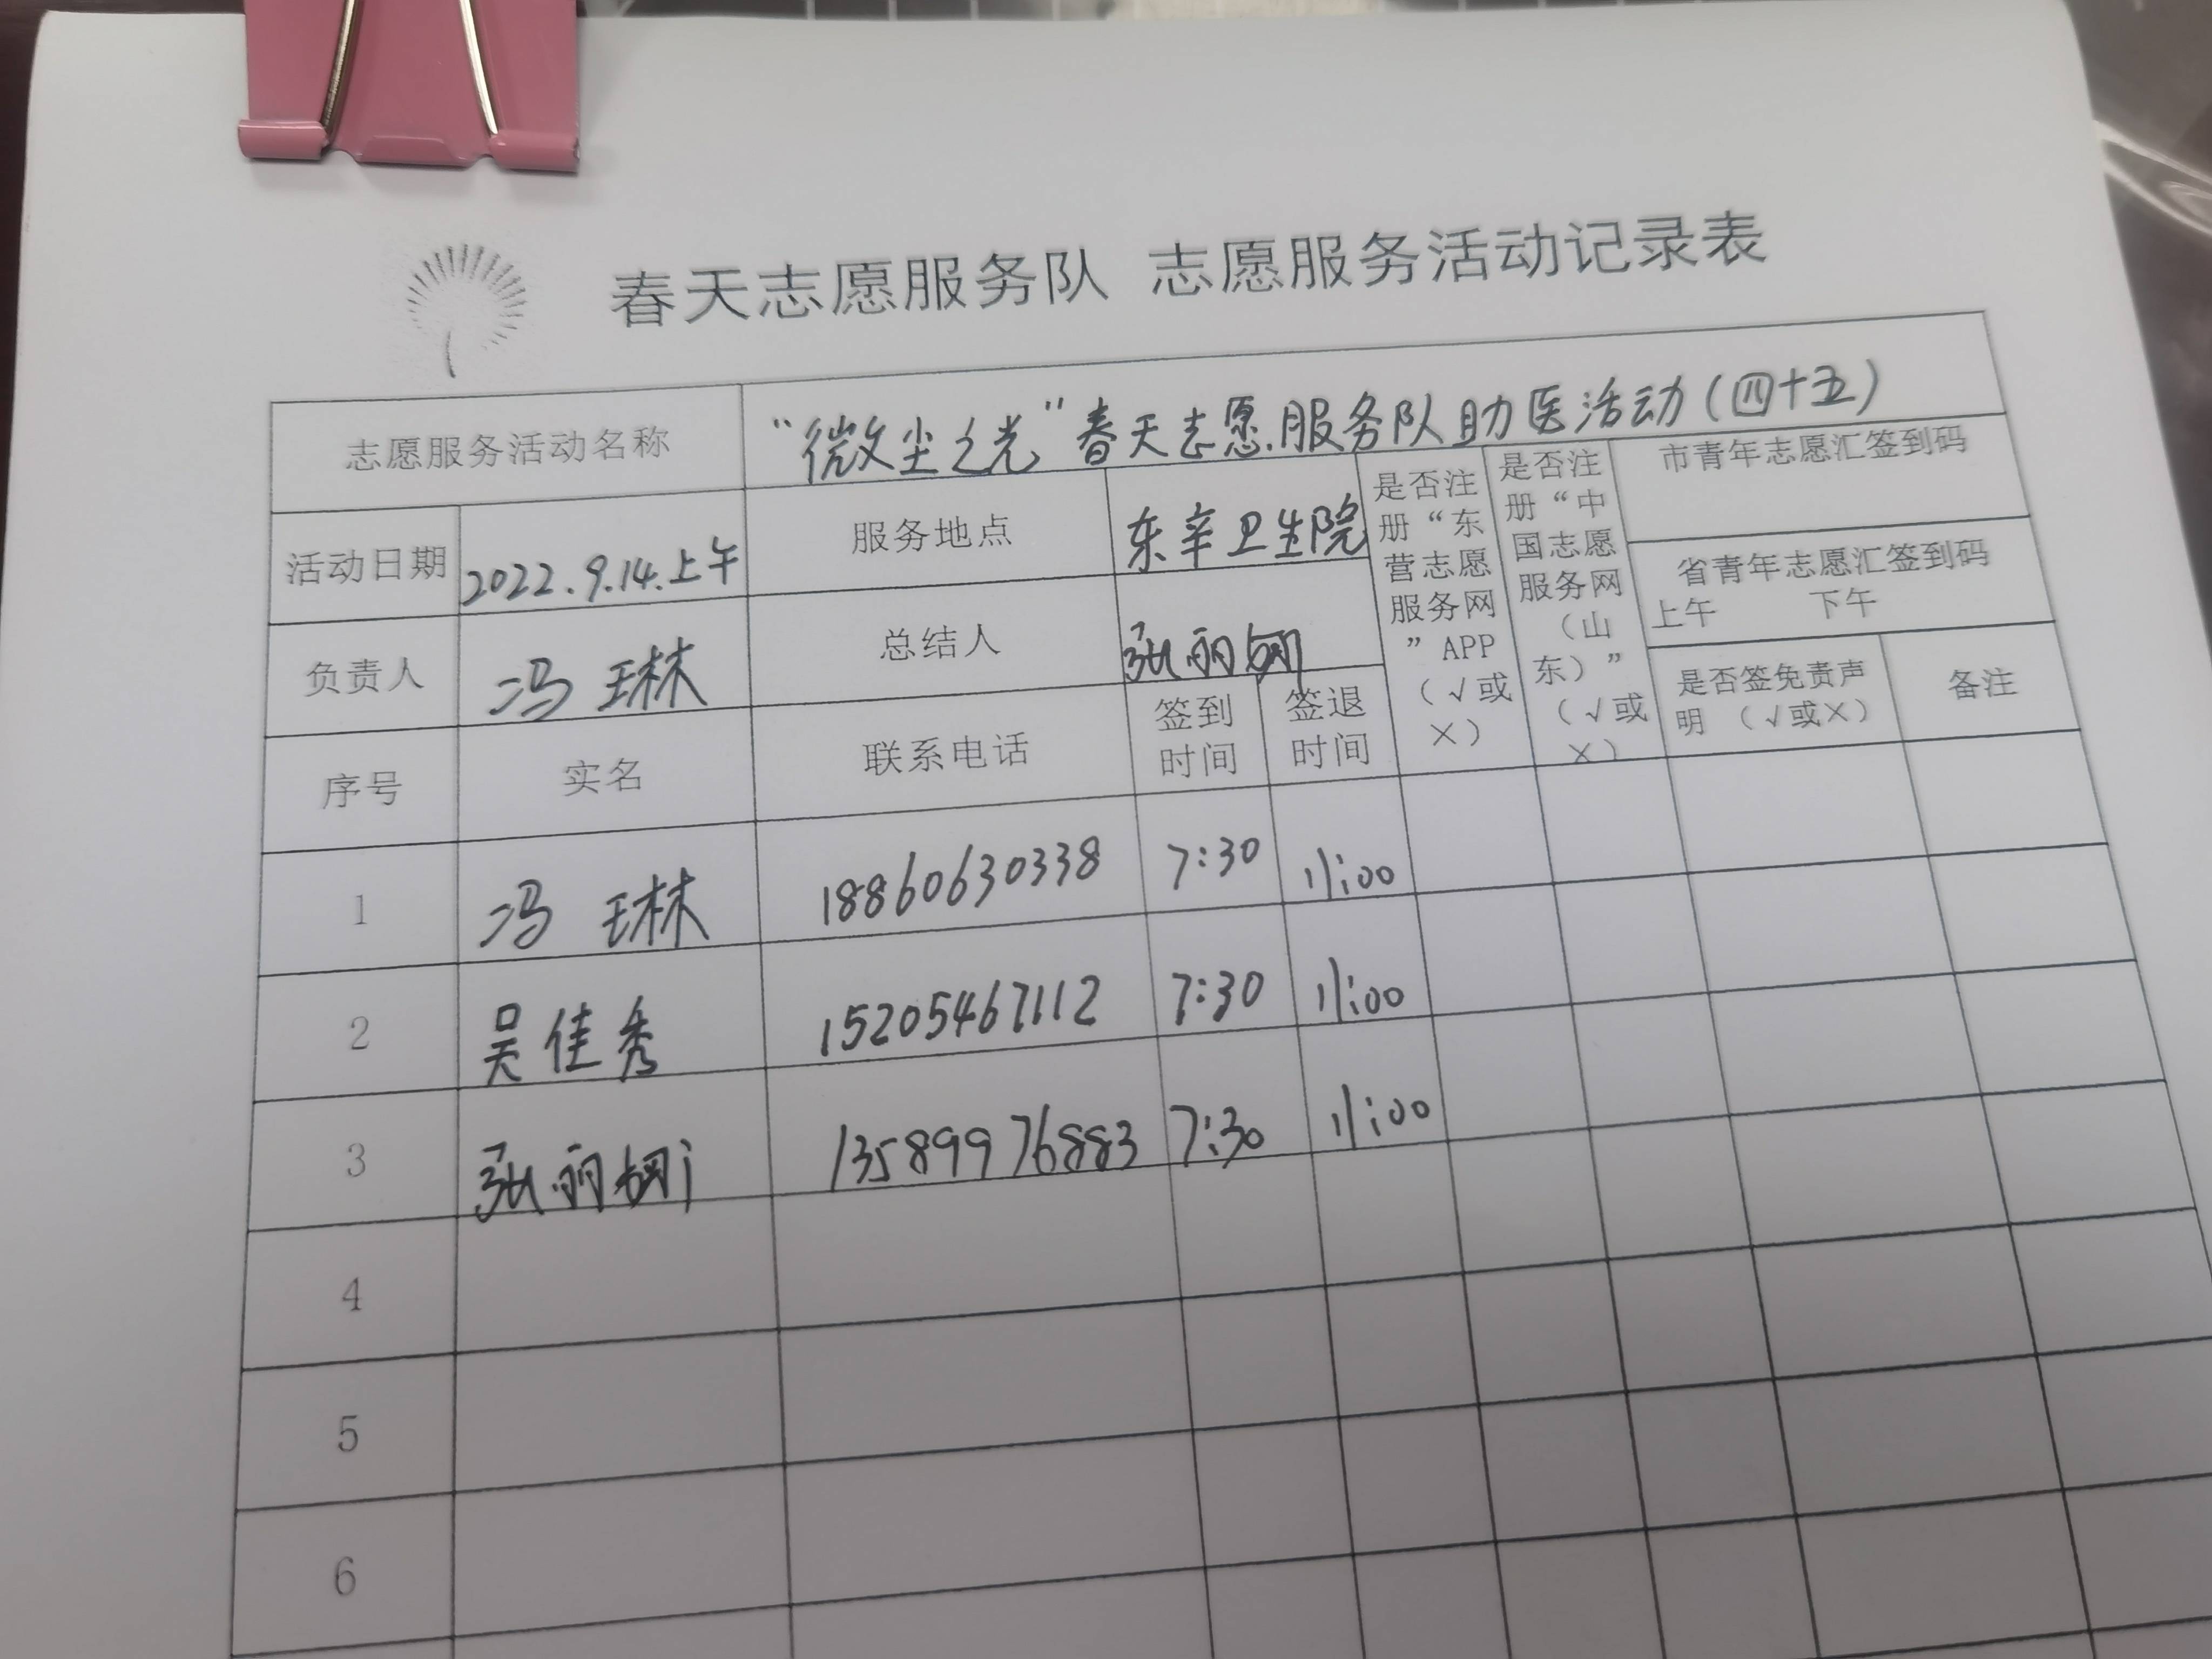 春天志愿服务队 志愿服务活动记录表
志愿服务活动名称 “微尘之光”春天志愿服务队助医活动(四十五)
活动日期 2022.9.14.上午 服务地点 东辛卫生院
是否注册“东营志愿服务网”APP（√或×）
是否注册“中国志愿服务网（山东）”（√或×）
市青年志愿汇签到码
省青年志愿汇签到码
上午 下午
负责人 冯琳 总结人 张丽
是否签免责声明（√或×） 备注
序号 实名 联系电话 签到时间 签退时间
1 冯琳 18860630338 7:30 11:00
2 吴佳秀 15205467112 7:30 11:00
3 张丽 13589976883 7:30 11:00
4
5
6